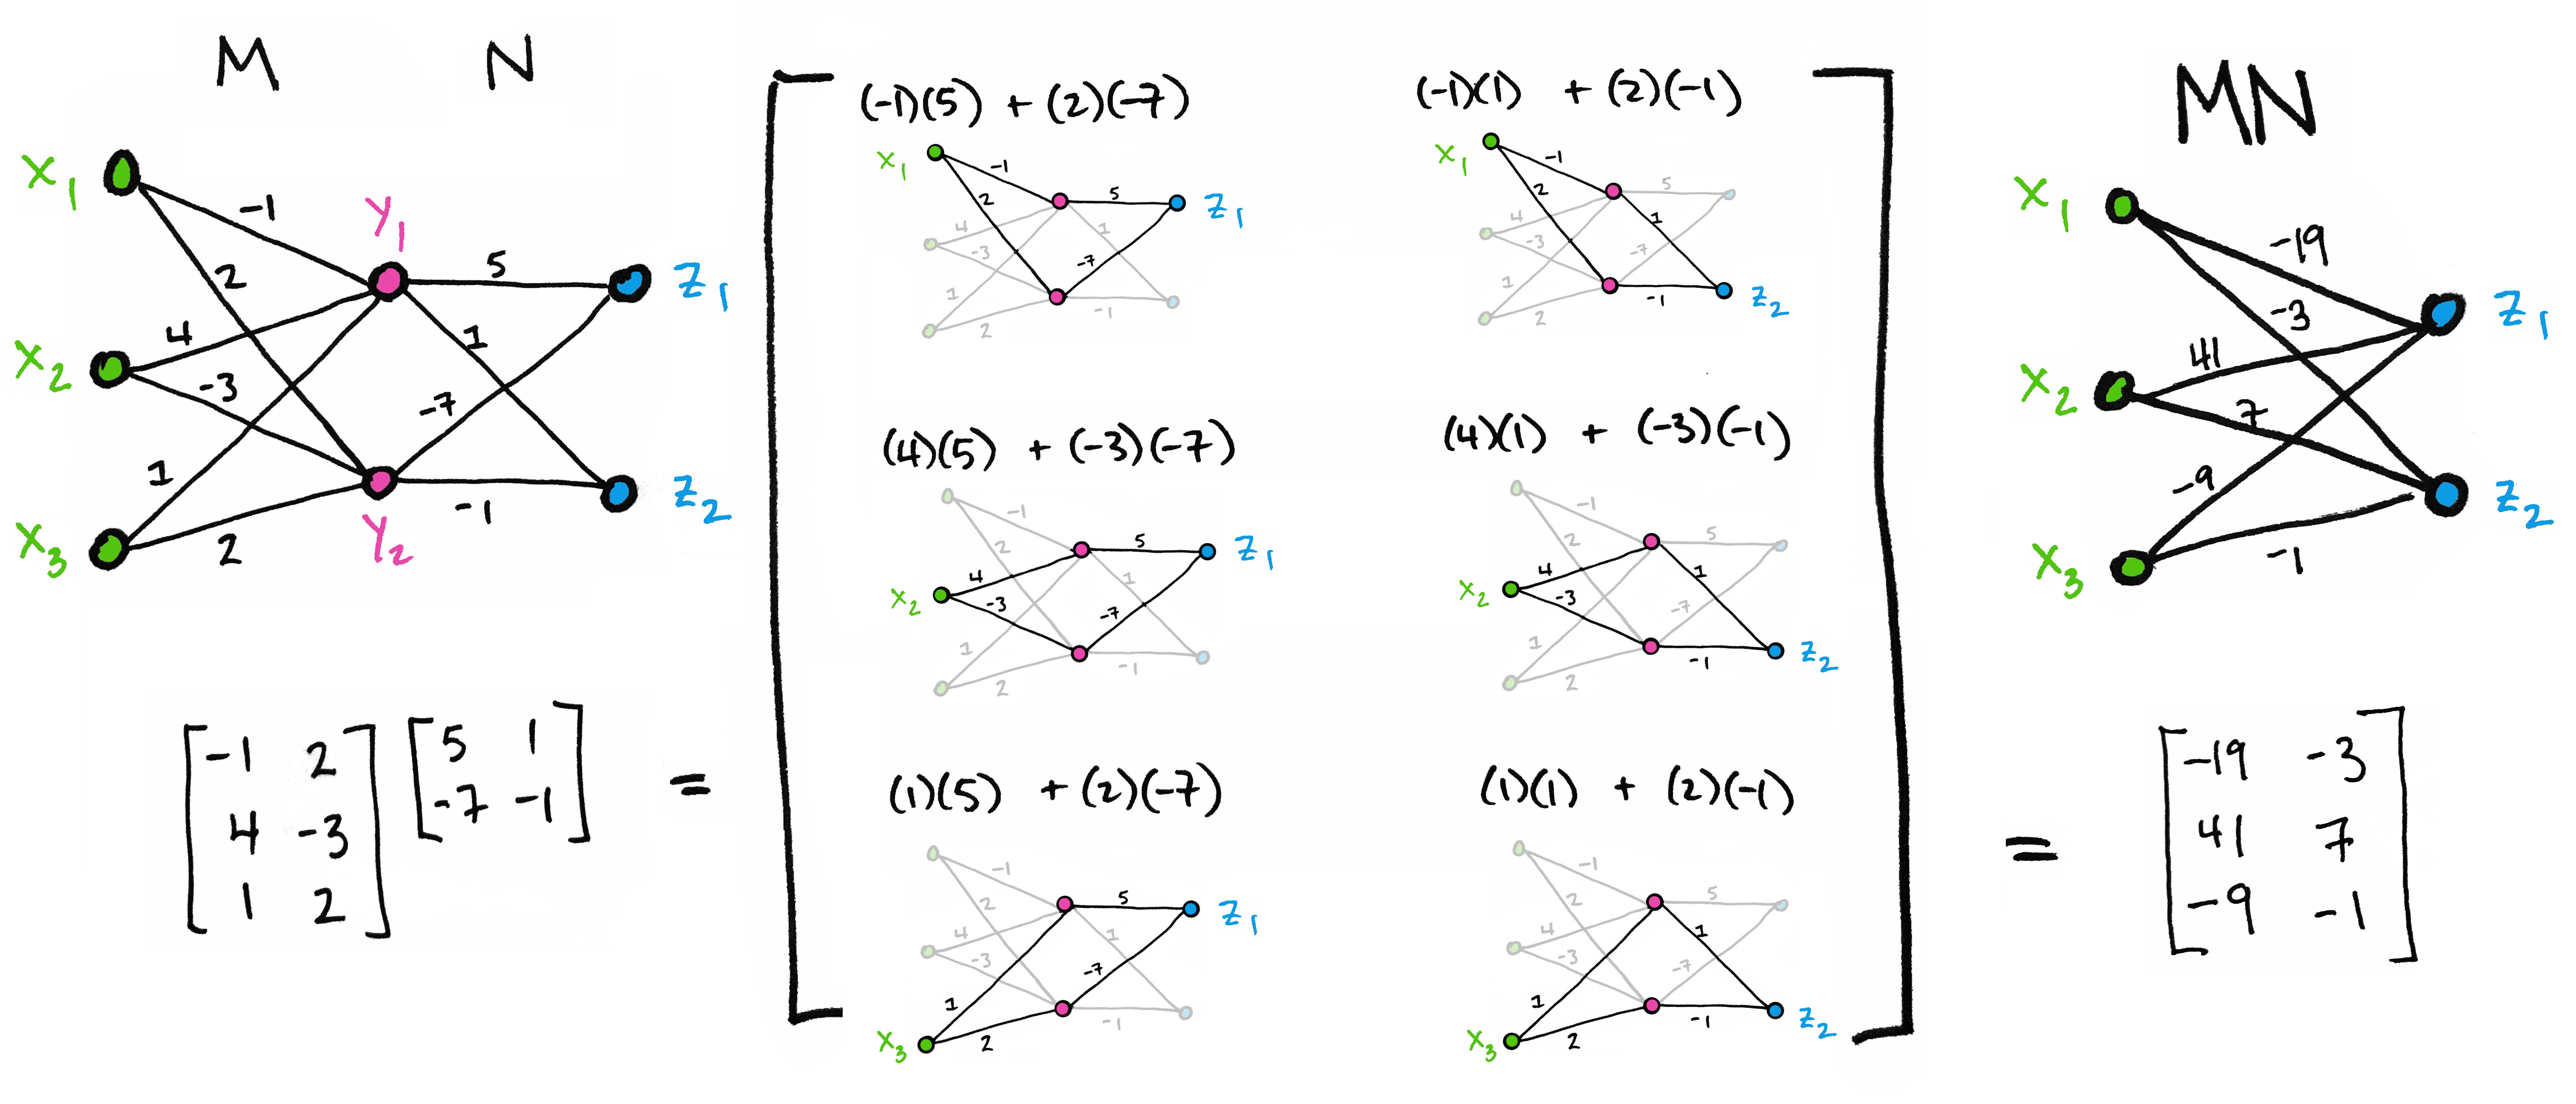 M N
x1
x2
x3
y1
y2
z1
z2
-1
2
4
-3
1
2
5
1
-7
-1
[-1 2] [5 1]
[4 -3] [-7 -1]
[1 2]
=
(-1)(5) + (2)(-7)
x1 -1 2 4 -3 1 2 5 1 -7 -1 z1
(-1)(1) + (2)(-1)
x1 -1 2 4 -3 1 2 5 1 -7 -1 z2
(4)(5) + (-3)(-7)
x2 -1 2 4 -3 1 2 5 1 -7 -1 z1
(4)(1) + (-3)(-1)
x2 -1 2 4 -3 1 2 5 1 -7 -1 z2
(1)(5) + (2)(-7)
x3 -1 2 4 -3 1 2 5 1 -7 -1 z1
(1)(1) + (2)(-1)
x3 -1 2 4 -3 1 2 5 1 -7 -1 z2
MN
x1
x2
x3
z1
z2
-19
-3
41
7
-9
-1
=
[-19 -3]
[41 7]
[-9 -1]